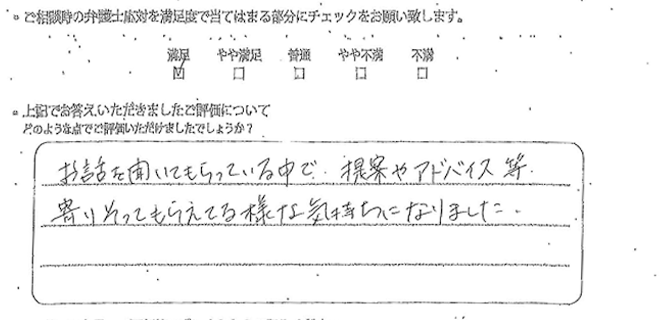 ご相談時の弁護士応対を満足度で当てはまる部分にチェックをお願い致します。
満足 やや満足 普通 やや不満 不満
上記でお答えいただきましたご評価について
どのような点でご評価いただけましたでしょうか?
お話を聞いてもらっている中で、提案やアドバイス等、
寄りそってもらえてる様な気持ちになりました。